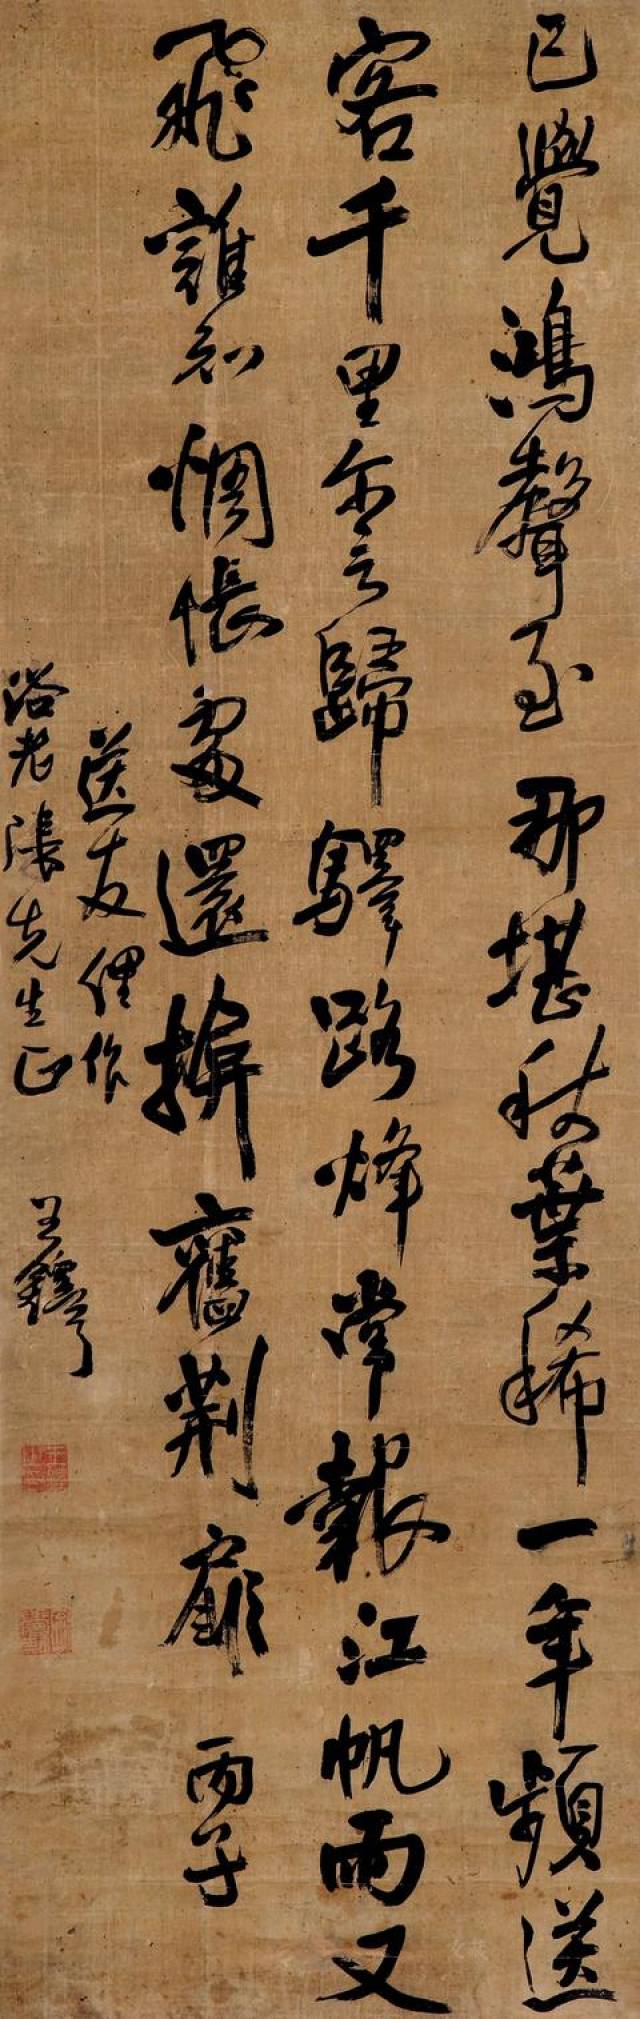 已覺鴻聲至那堪秋葉稀一年頻送
客千里尒言歸驛路烽常報江帆雨又
飛誰知惆悵處還揜舊荆扉丙子
送友俚作
老張先生正 王鐸